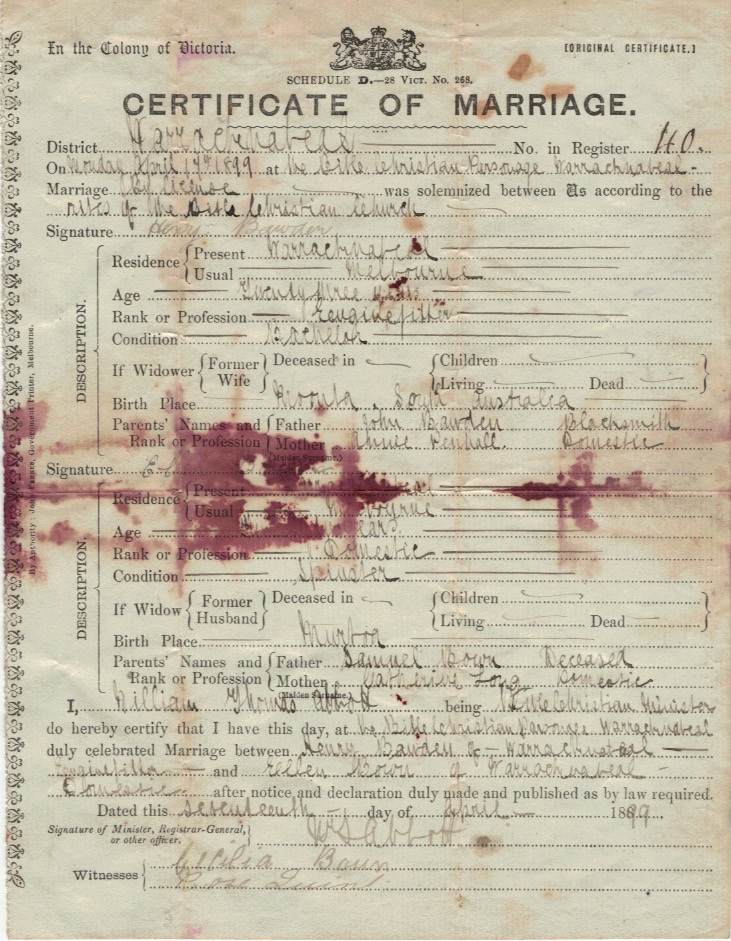 In the Colony of Victoria.
[ORIGINAL CERTIFICATE.]
SCHEDULE D.—28 VICT. No. 268.
CERTIFICATE OF MARRIAGE.
District Warracknabeal No. in Register 40.
On Monday April 17th 1899 at the Bible Christian Parsonage Warracknabeal
Marriage By License was solemnized between Us according to the
rites of the Bible Christian Church
Signature Henry Bawden
DESCRIPTION.
Residence Present Warracknabeal
Usual Melbourne
Age Twenty three years
Rank or Profession Enginefitter
Condition Bachelor
If Widower Former Wife Deceased in Children Living Dead
Birth Place South Australia
Parents' Names and Rank or Profession Father John Bawden Blacksmith
Mother Annie Domestic
(Maiden Surname.)
Signature
DESCRIPTION.
Residence Present
Usual Melbourne
Age years
Rank or Profession Domestic
Condition Spinster
If Widow Former Husband Deceased in Children Living Dead
Birth Place
Parents' Names and Rank or Profession Father Samuel Deceased
Mother Catherine Long Domestic
(Maiden Surname.)
I, William Thomas Abbott being Bible Christian Minister
do hereby certify that I have this day, at the Bible Christian Parsonage Warracknabeal
duly celebrated Marriage between Henry Bawden of Warracknabeal
Enginefitter and Ellen of Warracknabeal
Domestic after notice and declaration duly made and published as by law required.
Dated this seventeenth day of April 1899
Signature of Minister, Registrar-General, or other officer. Abbott
Witnesses Cecilia
Rose
By Authority: John Ferres, Government Printer, Melbourne.